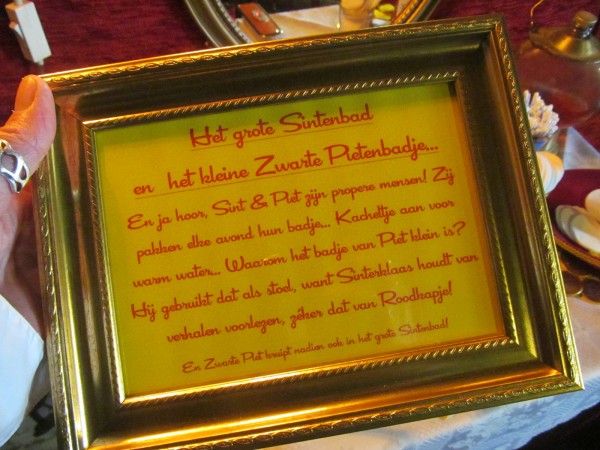 Het grote Sintenbad
en het kleine Zwarte Pietenbadje...
En ja hoor, Sint & Piet zijn propere mensen! Zij
pakken elke avond hun badje... Kacheltje aan voor
warm water... Waarom het badje van Piet klein is?
Hij gebruikt dat als stoel, want Sinterklaas houdt van
verhalen voorlezen, zéker dat van Roodkapje!
En Zwarte Piet kruipt nadien ook in het grote Sintenbad!